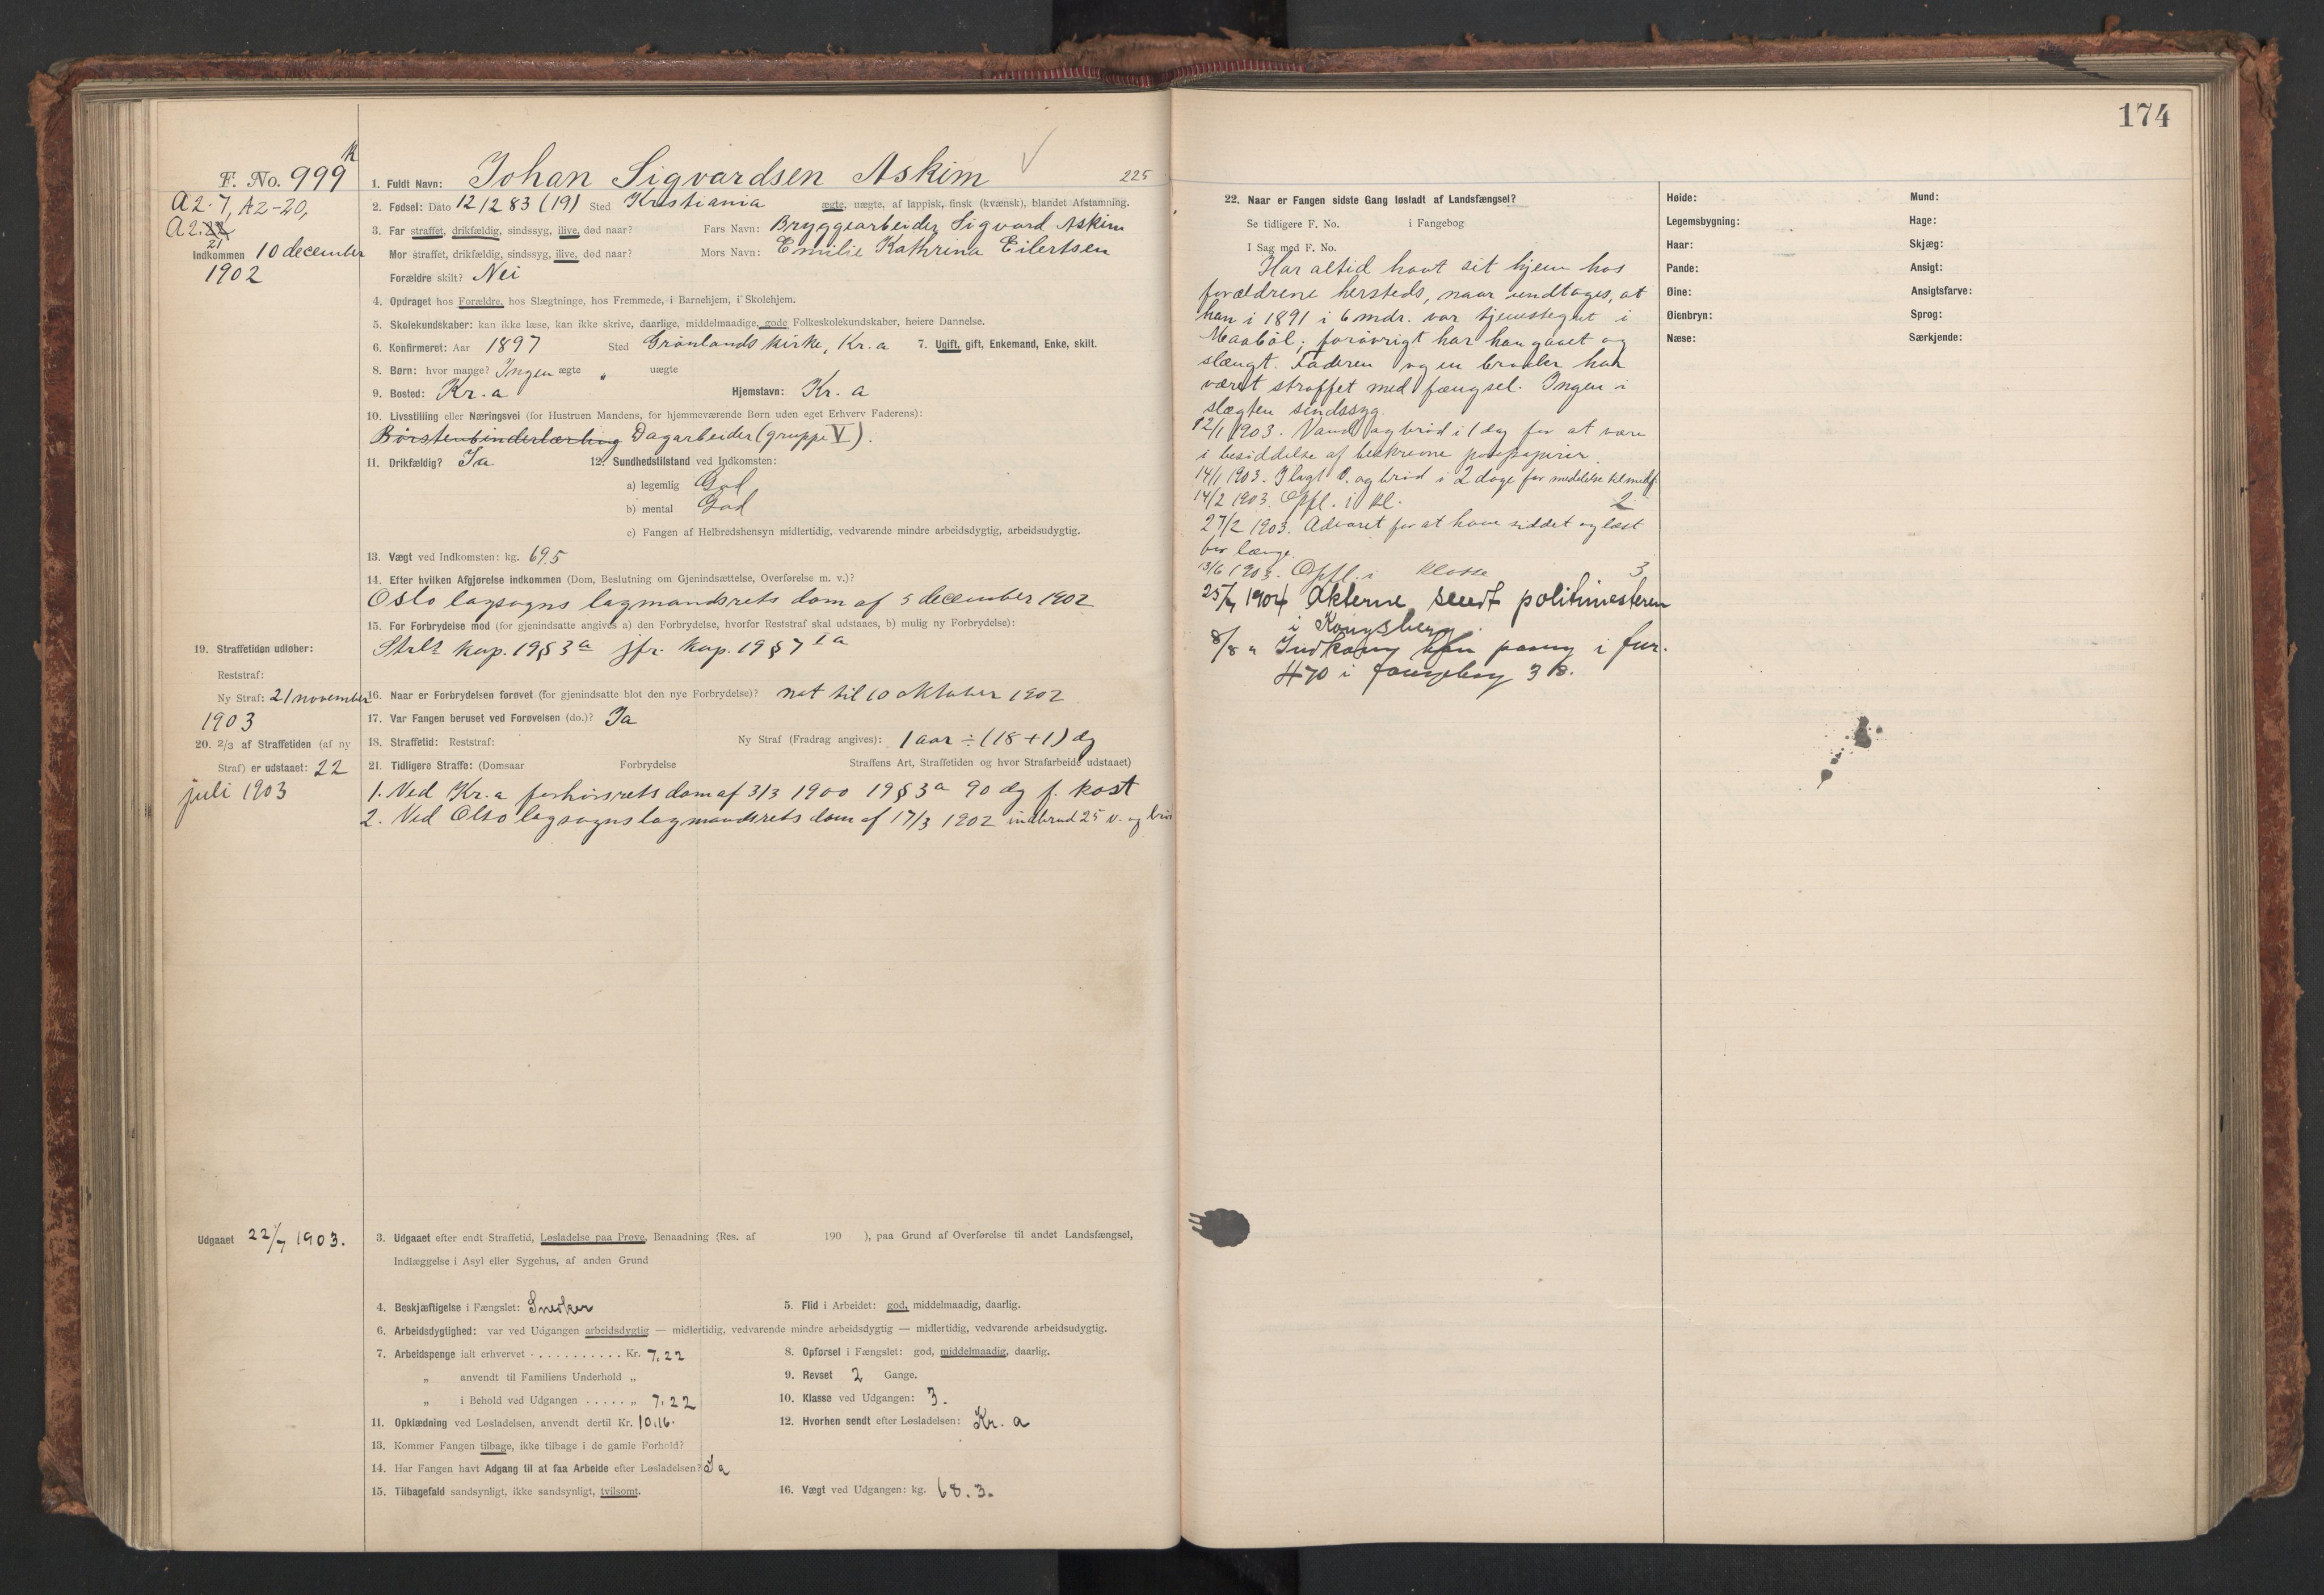 174
F. No. 999 K
A 2-7, A2-20,
A 2. 21
Indkommen 10 december
1902
1. Fuldt Navn: Johan Sigvardsen Askim 225
2. Fødsel: Dato 12/2 83 (19) Sted Kristiania ægte, uægte, af lappisk, finsk (kvænsk), blandet Afstamning.
3. Far straffet, drikfældig, sindssyg, ilive, død naar? Fars Navn: Bryggearbeider Sigvard Askim
Mor straffet, drikfældig, sindssyg, ilive, død naar? Mors Navn: Emilie Kathrina Eilertsen
Forældre skilt? Nei
4. Opdraget hos Forældre, hos Slægtninge, hos Fremmede, i Barnehjem, i Skolehjem.
5. Skolekundskaber: kan ikke læse, kan ikke skrive, daarlige, middelmaadige, gode Folkeskolekundskaber, høiere Dannelse.
6. Konfirmeret: Aar 1897 Sted Grønlands kirke, Kr.a 7. Ugift, gift, Enkemand, Enke, skilt.
8. Børn: hvor mange? Ingen ægte " uægte
9. Bosted: Kr.a Hjemstavn: Kr.a
10. Livsstilling eller Næringsvei (for Hustruen Mandens, for hjemmeværende Børn uden eget Erhverv Faderens):
Børstenbinderlærling Dagarbeider (gruppe V).
11. Drikfældig? Ja 12. Sundhedstilstand ved Indkomsten:
a) legemlig God
b) mental God
c) Fangen af Helbredshensyn midlertidig, vedvarende mindre arbeidsdygtig, arbeidsudygtig.
13. Vægt ved Indkomsten: kg. 69.5
14. Efter hvilken Afgjørelse indkommen (Dom, Beslutning om Gjenindsættelse, Overførelse m. v.)?
Oslo lagsogns lagmandsrets dom af 5 december 1902
15. For Forbrydelse mod (for gjenindsatte angives a) den Forbrydelse, hvorfor Reststraf skal udstaaes, b) mulig ny Forbrydelse):
Strl. kap. 19 § 3 a jfr. kap. 19 § 7 I a
19. Straffetiden udløber:
Reststraf:
Ny Straf: 21 november
1903
16. Naar er Forbrydelsen forøvet (for gjenindsatte blot den nye Forbrydelse)? nat til 10 oktober 1902
17. Var Fangen beruset ved Forøvelsen (do.)? Ja
18. Straffetid: Reststraf: Ny Straf (Fradrag angives): 1 aar ÷ (18 + 1) dg
20. 2/3 af Straffetiden (af ny
Straf) er udstaaet: 22
juli 1903
21. Tidligere Straffe: (Domsaar Forbrydelse Straffens Art, Straffetiden og hvor Strafarbeide udstaaet)
1. Ved Kr.a forhørsrets dom af 3/3 1900 19 § 3 a 90 dg f. kost
2. Ved Olso lagsogns lagmandsrets dom af 17/3 1902 indbrud 25 v. og brød
Udgaaet 22/7 1903.
3. Udgaaet efter endt Straffetid, Løsladelse paa Prøve, Benaadning (Res. af 190 ), paa Grund af Overførelse til andet Landsfængsel,
Indlæggelse i Asyl eller Sygehus, af anden Grund
4. Beskjæftigelse i Fængslet: Snedker 5. Flid i Arbeidet: god, middelmaadig, daarlig.
6. Arbeidsdygtighed: var ved Udgangen arbeidsdygtig — midlertidig, vedvarende mindre arbeidsdygtig — midlertidig, vedvarende arbeidsudygtig.
7. Arbeidspenge ialt erhvervet . . . . . . . . . . . Kr. 7.22 8. Opførsel i Fængslet: god, middelmaadig, daarlig.
" anvendt til Familiens Underhold " 9. Revset 2 Gange.
" i Behold ved Udgangen . . . . . " 7.22 10. Klasse ved Udgangen: 3.
11. Opklædning ved Løsladelsen, anvendt dertil Kr. 10.16. 12. Hvorhen sendt efter Løsladelsen: Kr. a
13. Kommer Fangen tilbage, ikke tilbage i de gamle Forhold?
14. Har Fangen havt Adgang til at faa Arbeide efter Løsladelsen? Ja
15. Tilbagefald sandsynligt, ikke sandsynligt, tvilsomt. 16. Vægt ved Udgangen: kg. 68.3.
22. Naar er Fangen sidste Gang løsladt af Landsfængsel?
Se tidligere F. No. i Fangebog
I Sag med F. No.
Har altid havt sit hjem hos
forældrene hersteds, naar undtages, at
han i 1891 i 6 mdr. var i
forøvrigt har han gaaet og
slængt. Faderen og en broder har
været straffet med fængsel. Ingen i
slægten sindssyg.
12/1 1903. Vand og brød i 1 dag for at være
i besiddelse af beskrevne
14/1 1903. Ilagt v. og brød i 2 dage for meddelelse til medf.
14/2 1903. Opfl. i kl. 2
27/2 1903. Advaret for at have siddet og læst
for længe.
13/6 1903. Opfl. i klasse 3
25/7 1904 Akterne sendt politimesteren
i Kongsberg.
8/8 " Indkom han paany i
470 i fangebog 3 B.
Høide:
Legemsbygning:
Haar:
Pande:
Øine:
Øienbryn:
Næse:
Mund:
Hage:
Skjæg:
Ansigt:
Ansigtsfarve:
Sprog:
Særkjende: